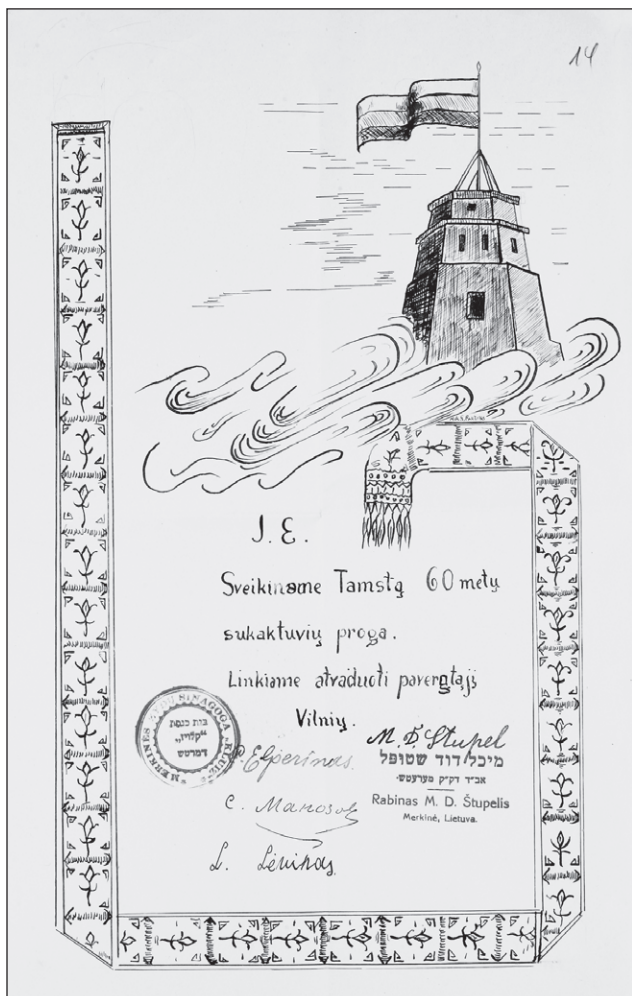 14
J. E.
Sveikiname Tamstą 60 metų
sukaktuvių proga.
Linkiame atvaduoti pavergtąjį
Vilnių.
MERKINĖS ŽYDŲ SINAGOGA
בית כנסת
"קלויז"
דמרטש
Elperinas.
M. D. Stupel
מיכל דוד שטופל
אב״ד דק״ק מערעטש.
Rabinas M. D. Štupelis
Merkinė, Lietuva.
L. Levinas